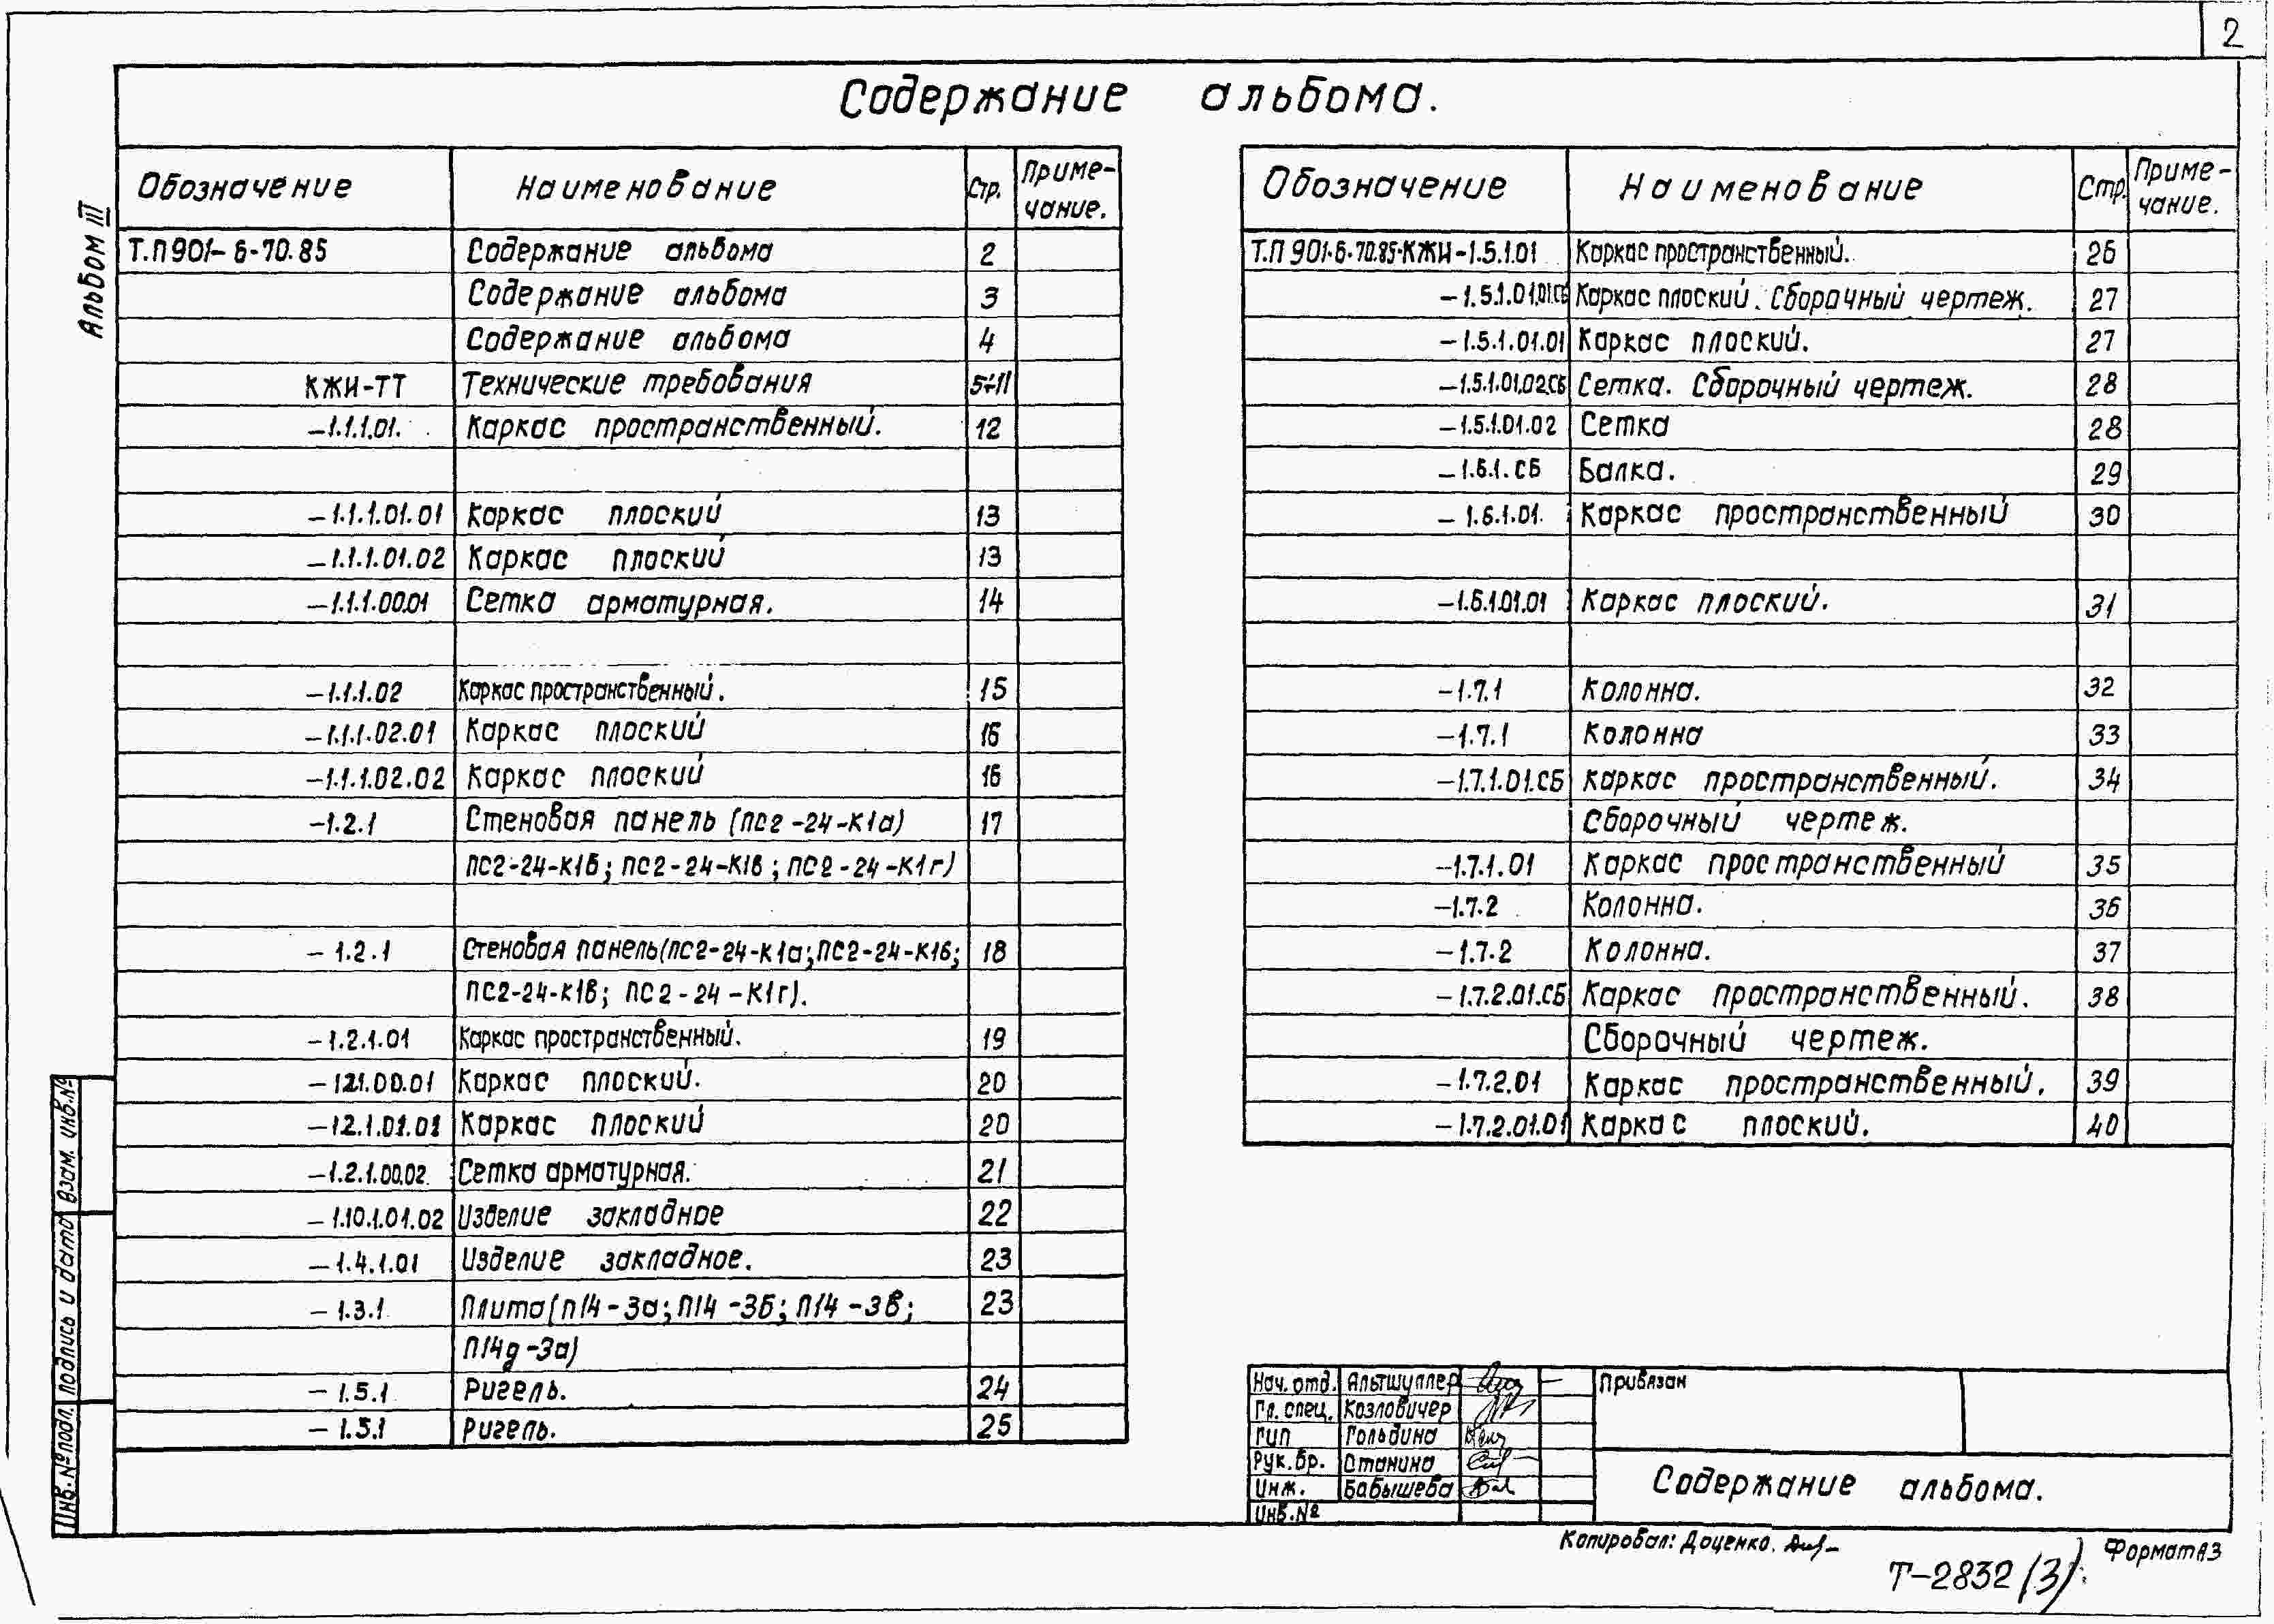 2
Содержание альбома.
Альбом III
Обозначение Наименование Стр. Приме-
чание.
Т.П 901-6-70.85 Содержание альбома 2
Содержание альбома 3
Содержание альбома 4
КЖИ-ТТ Технические требования 5÷11
-1.1.1.01. Каркас пространственный. 12
-1.1.1.01.01 Каркас плоский 13
-1.1.1.01.02 Каркас плоский 13
-1.1.1.00.01 Сетка арматурная. 14
-1.1.1.02 Каркас пространственный. 15
-1.1.1.02.01 Каркас плоский 16
-1.1.1.02.02 Каркас плоский 16
-1.2.1 Стеновая панель (ПС2-24-К1а) 17
ПС2-24-К1б; ПС2-24-К1в; ПС2-24-К1г)
-1.2.1 Стеновая панель(ПС2-24-К1а;ПС2-24-К1б; 18
ПС2-24-К1в; ПС2-24-К1г).
-1.2.1.01 Каркас пространственный. 19
-1.2.1.00.01 Каркас плоский. 20
-1.2.1.01.01 Каркас плоский 20
-1.2.1.00.02. Сетка арматурная. 21
-1.10.1.01.02 Изделие закладное 22
-1.4.1.01 Изделие закладное. 23
-1.3.1 Плита(П14-3а; П14-3б; П14-3в; 23
П14д-3а)
-1.5.1 Ригель. 24
-1.5.1 Ригель. 25
Обозначение Наименование Стр. Приме-
чание.
Т.П 901-6-70.85-КЖИ-1.5.1.01 Каркас пространственный. 26
-1.5.1.01.01.СБ Каркас плоский. Сборочный чертеж. 27
-1.5.1.01.01 Каркас плоский. 27
-1.5.1.01.02.СБ Сетка. Сборочный чертеж. 28
-1.5.1.01.02 Сетка 28
-1.6.1.СБ Балка. 29
-1.6.1.01. Каркас пространственный 30
-1.6.1.01.01 Каркас плоский. 31
-1.7.1 Колонна. 32
-1.7.1 Колонна 33
-1.7.1.01.СБ Каркас пространственный. 34
Сборочный чертеж.
-1.7.1.01 Каркас пространственный 35
-1.7.2 Колонна. 36
-1.7.2 Колонна. 37
-1.7.2.01.СБ Каркас пространственный. 38
Сборочный чертеж.
-1.7.2.01 Каркас пространственный. 39
-1.7.2.01.01 Каркас плоский. 40
Взам. инв.№
Подпись и дата
Инв.№ подл.
Нач. отд. Альтшуллер
Гл. спец. Козловичер
ГИП Гольдина
Рук. бр. Станина
Инж. Бабышева
Инв.№
Привязан
Содержание альбома.
Копировал: Доценко.
Формат А3
Т-2832 (3)